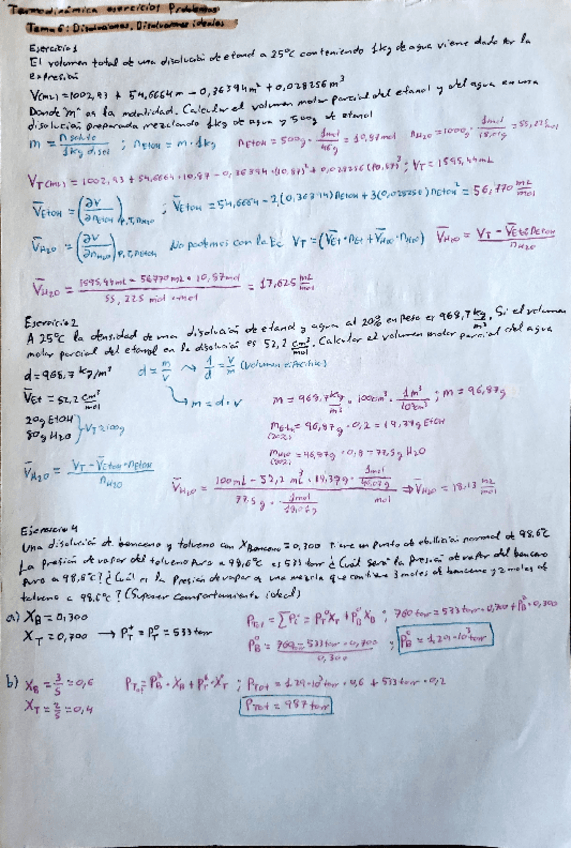 Termodinámica ejercicios Problemas
Tema 6: Disoluciones, Disoluciones ideales
Ejercicio 1
El volumen total de una disolución de etanol a 25°C conteniendo 1kg de agua viene dado por la
expresión
V(mL) = 1002,93 + 54,6664 m - 0,36394 m² + 0,028256 m³
Donde "m" es la molalidad. Calcular el volumen molar parcial del etanol y del agua en una
disolución preparada mezclando 1kg de agua y 500g de etanol
m = n soluto / 1kg disol ; nEtOH = m · 1kg nEtOH = 500g · 1mol / 46g = 10,87mol nH2O = 1000g · 1mol / 18,01g = 55,225mol
VT(mL) = 1002,93 + 54,6664 · 10,87 - 0,36394 · (10,87)² + 0,028256 (10,87)³ ; VT = 1595,44mL
V̄EtOH = (∂V/∂nEtOH)P,T,nH2O ; V̄EtOH = 54,6664 - 2(0,36394)nEtOH + 3(0,028256) nEtOH² = 56,770 mL/mol
V̄H2O = (∂V/∂nH2O)P,T,nEtOH No podemos con la Ec VT = (V̄Et · nEt + V̄H2O · nH2O) V̄H2O = VT - V̄Et · nEtOH / nH2O
V̄H2O = 1595,44mL - 56770mL · 10,87mol / 55,225 mol = 17,625 mL/mol
Ejercicio 2
A 25°C la densidad de una disolución de etanol y agua al 20% en peso es 968,7 kg/m³, Si el volumen
molar parcial del etanol en la disolución es 52,2 cm³/mol. Calcular el volumen molar parcial del agua
d = 968,7 kg/m³ d = m/V → 1/d = V/m (volumen específico)
V̄Et = 52,2 cm³/mol → m = d · V m = 968,7kg/m³ · 100cm³ · 1m³/10⁶cm³ ; m = 96,87g
20g EtOH
80g H2O } VT=100g
mEtOH (20%) = 96,87g · 0,2 = 19,37g EtOH
mH2O (80%) = 96,87g · 0,8 = 77,5g H2O
V̄H2O = VT - V̄EtOH · nEtOH / nH2O V̄H2O = 100mL - 52,2 mL/mol · 19,37g · 1mol/46,07g / 77,5g · 1mol/18,01g ⇒ V̄H2O = 18,13 mL/mol
Ejercicio 4
Una disolución de benceno y tolueno con XBenceno = 0,300 tiene un punto de ebullición normal de 98,6°C
La presión de vapor del tolueno puro a 98,6°C es 533 torr ¿Cuál será la presión de vapor del benceno
puro a 98,6°C? ¿Cuál es la presión de vapor de una mezcla que contiene 3 moles de benceno y 2 moles de
tolueno a 98,6°C? (Suponer comportamiento ideal)
a) XB = 0,300 PTot = ∑Pi = PT°XT + PB°XB ; 760torr = 533torr · 0,700 + PB° · 0,300
XT = 0,700 → PT* = PT° = 533torr PB° = 760torr - 533torr · 0,700 / 0,300 ; PB° = 1,29 · 10³ torr
b) XB = 3/5 = 0,6 PTot = PB° · XB + PT° · XT ; PTot = 1,29 · 10³torr · 0,6 + 533torr · 0,2
XT = 2/5 = 0,4 PTot = 987torr